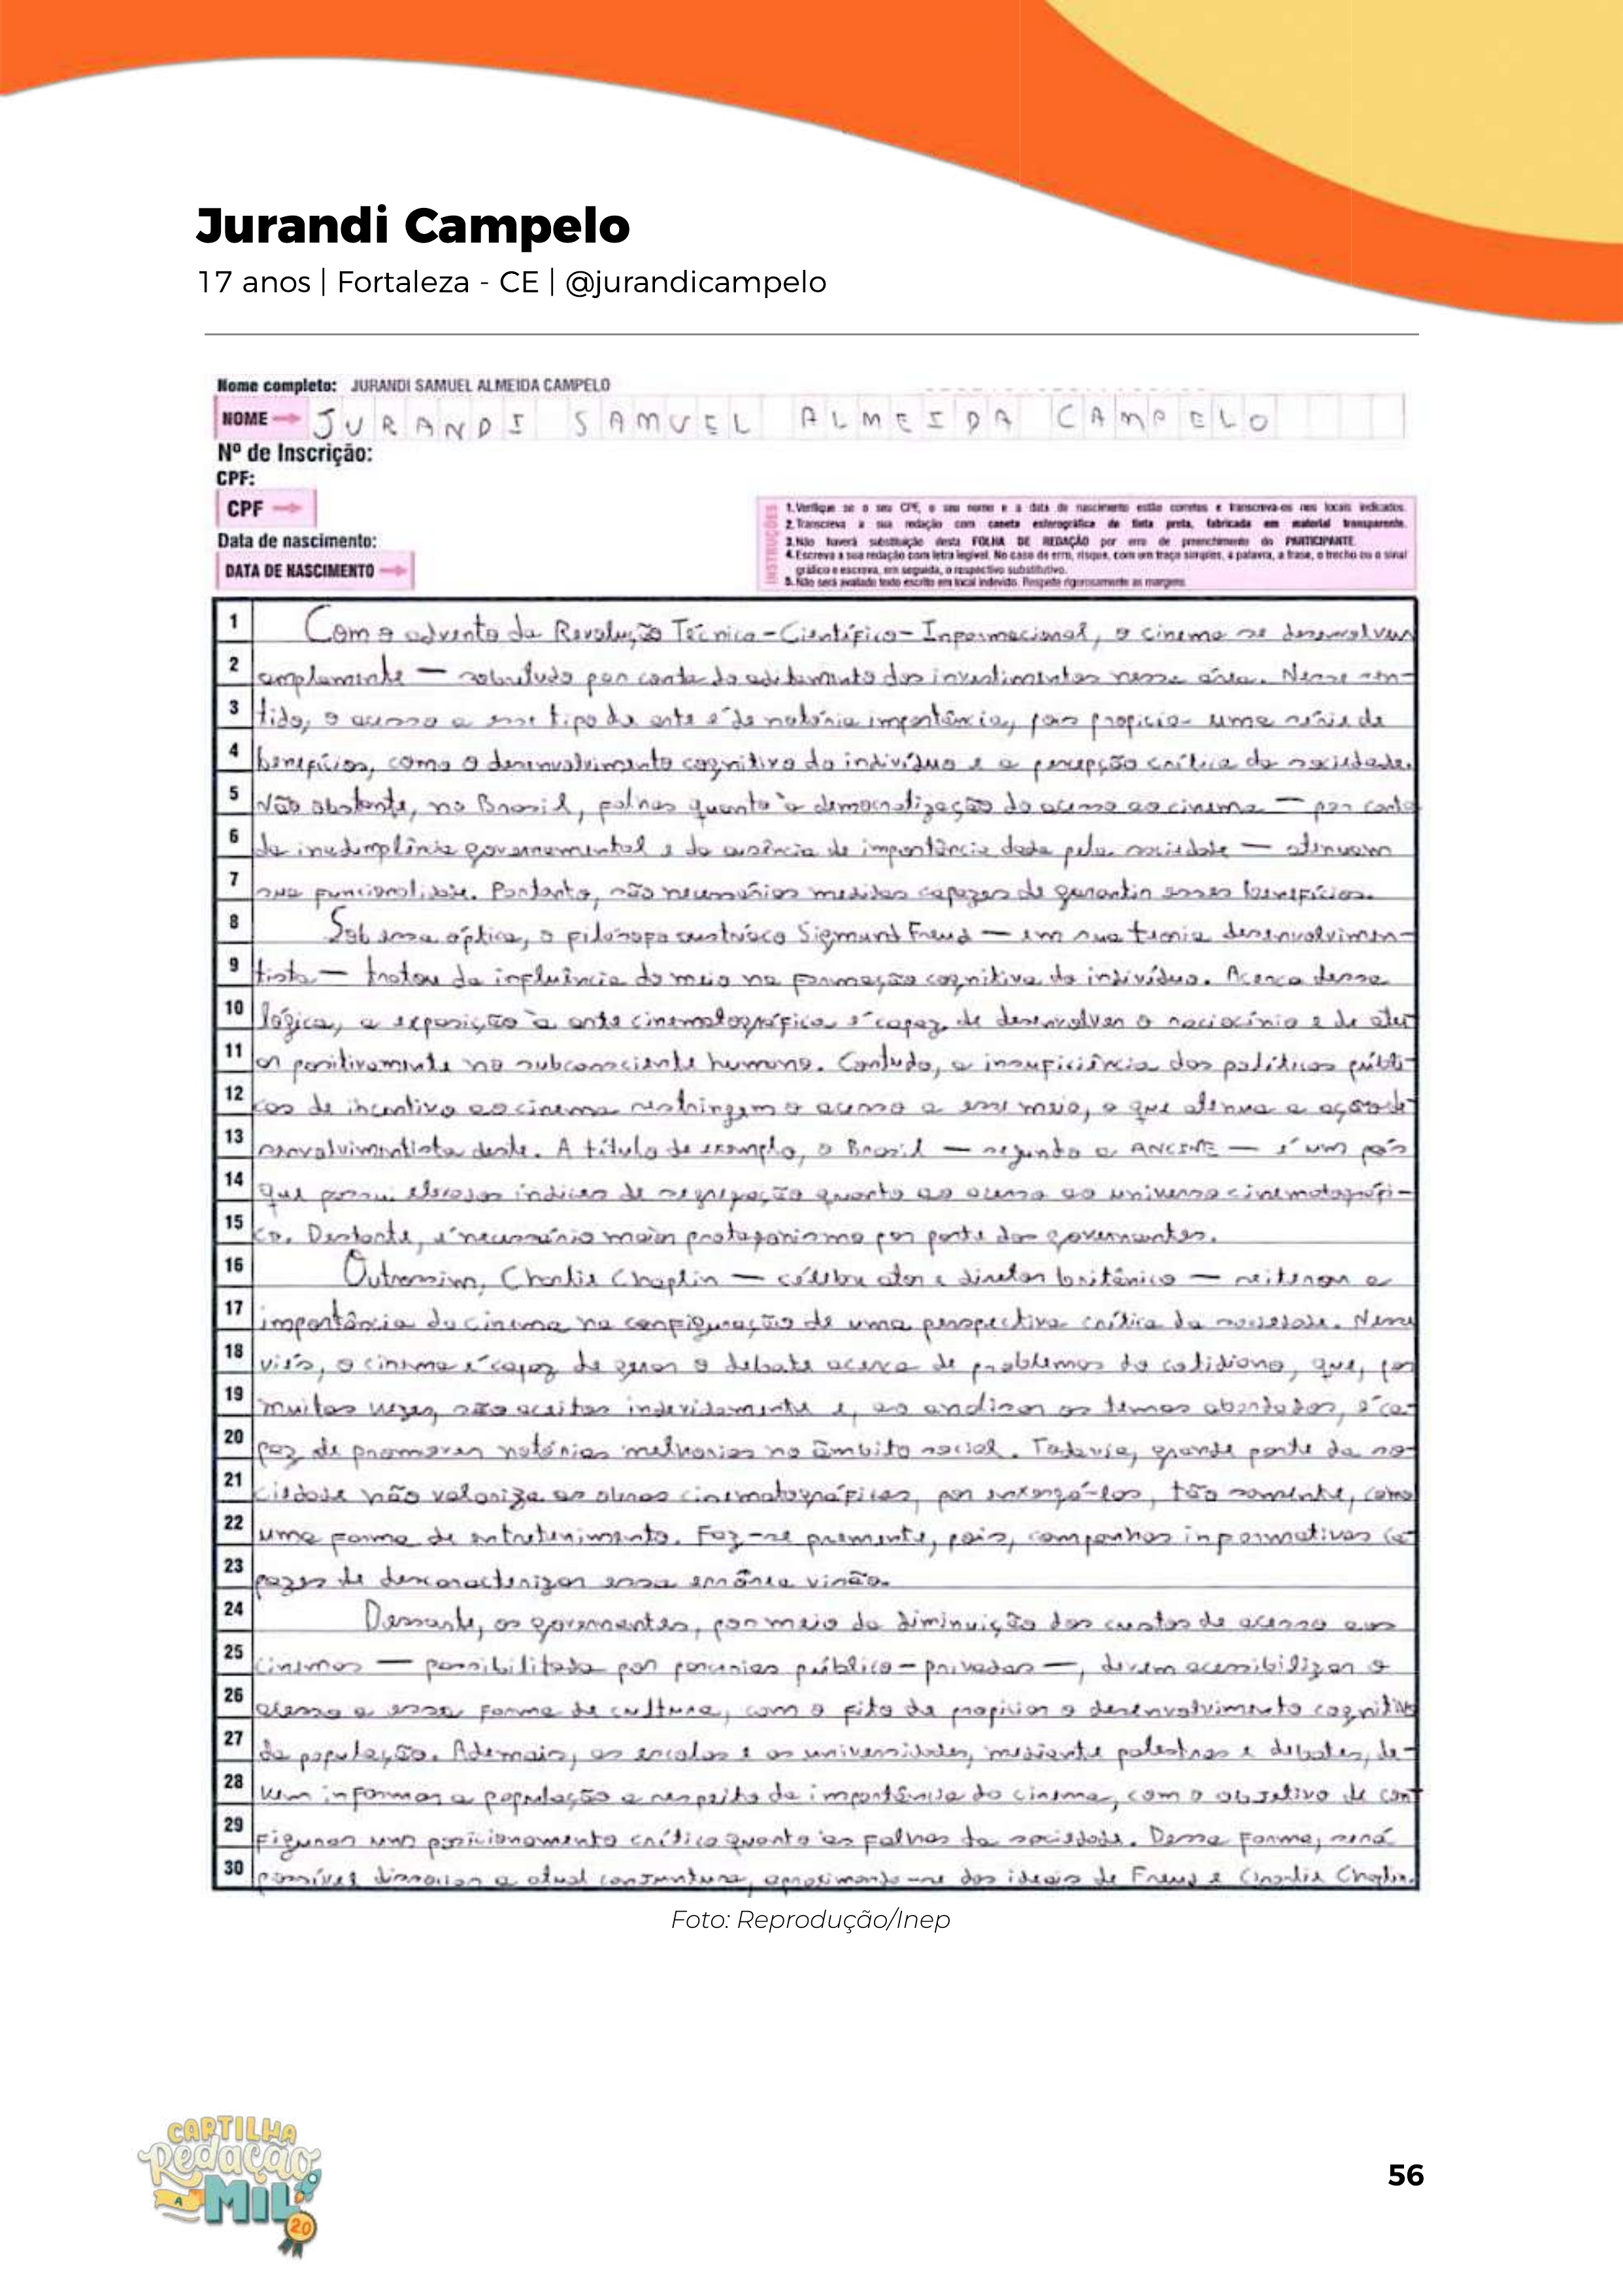 Jurandi Campelo
17 anos | Fortaleza - CE | @jurandicampelo
Nome completo: JURANDI SAMUEL ALMEIDA CAMPELO
NOME JURANDI SAMUEL ALMEIDA CAMPELO
Nº de Inscrição:
CPF:
CPF
Data de nascimento:
DATA DE NASCIMENTO
INSTRUÇÕES
1. Verifique se o seu CPF, o seu nome e a data de nascimento estão corretos e transcreva-os nos locais indicados.
2. Transcreva a sua redação com caneta esferográfica de tinta preta, fabricada em material transparente.
3. Não haverá substituição desta FOLHA DE REDAÇÃO por erro de preenchimento do PARTICIPANTE.
4. Escreva a sua redação com letra legível. No caso de erro, risque, com um traço simples, a palavra, a frase, o trecho ou o sinal
gráfico e escreva, em seguida, o respectivo substitutivo.
5. Não será avaliado texto escrito em local indevido. Respeite rigorosamente as margens.
1 Com o advento da Revolução Técnico-Científico-Informacional, o cinema se desenvolveu
2 amplamente — sobretudo por conta do aditamento dos investimentos nessa área. Nesse sen-
3 tido, o acesso a esse tipo de arte é de notória importância, pois propicia uma série de
4 benefícios, como o desenvolvimento cognitivo do indivíduo e a percepção crítica da sociedade.
5 Não obstante, no Brasil, falhas quanto à democratização do acesso ao cinema — por conta
6 da inadimplência governamental e da ausência de importância dada pela sociedade — atenuam
7 sua funcionalidade. Portanto, são necessárias medidas capazes de garantir esses benefícios.
8 Sob essa óptica, o filósofo austríaco Sigmund Freud — em sua teoria desenvolvimen-
9 tista — tratou da influência do meio na formação cognitiva do indivíduo. Acerca dessa
10 lógica, a exposição à arte cinematográfica é capaz de desenvolver o raciocínio e de atu
11 ar positivamente no subconsciente humano. Contudo, a insuficiência das políticas públi-
12 cas de incentivo ao cinema restringem o acesso a esse meio, o que atenua a ação de-
13 senvolvimentista deste. A título de exemplo, o Brasil — segundo a ANCINE — é um país
14 que possui elevados índices de segregação quanto ao acesso ao universo cinematográfi-
15 co. Destarte, é necessário maior protagonismo por parte dos governantes.
16 Outrossim, Charlie Chaplin — célebre ator e diretor britânico — reiterou a
17 importância do cinema na configuração de uma perspectiva crítica da sociedade. Nesse
18 viés, o cinema é capaz de gerar o debate acerca de problemas do cotidiano, que, por
19 muitas vezes, são aceitos indevidamente e, ao analisar os temas abordados, é ca-
20 paz de promover notórias melhorias no âmbito social. Todavia, grande parte da so-
21 ciedade não valoriza as obras cinematográficas, por enxergá-los, tão somente, como
22 uma forma de entretenimento. Faz-se premente, pois, campanhas informativas ca-
23 pazes de descaracterizar essa errônea visão.
24 Dessarte, os governantes, por meio da diminuição dos custos de acesso aos
25 cinemas — possibilitada por parcerias público-privadas —, devem acessibilizar o
26 acesso a essa forma de cultura, com o fito de propiciar o desenvolvimento cognitivo
27 da população. Ademais, as escolas e as universidades, mediante palestras e debates, de-
28 vem informar a população a respeito da importância do cinema, com o objetivo de con-
29 figurar um posicionamento crítico quanto às falhas da sociedade. Dessa forma, será
30 possível dissociar a atual conjuntura, aproximando-se dos ideais de Freud e Charlie Chaplin.
Foto: Reprodução/Inep
CARTILHA
Redação
A MIL
20
56